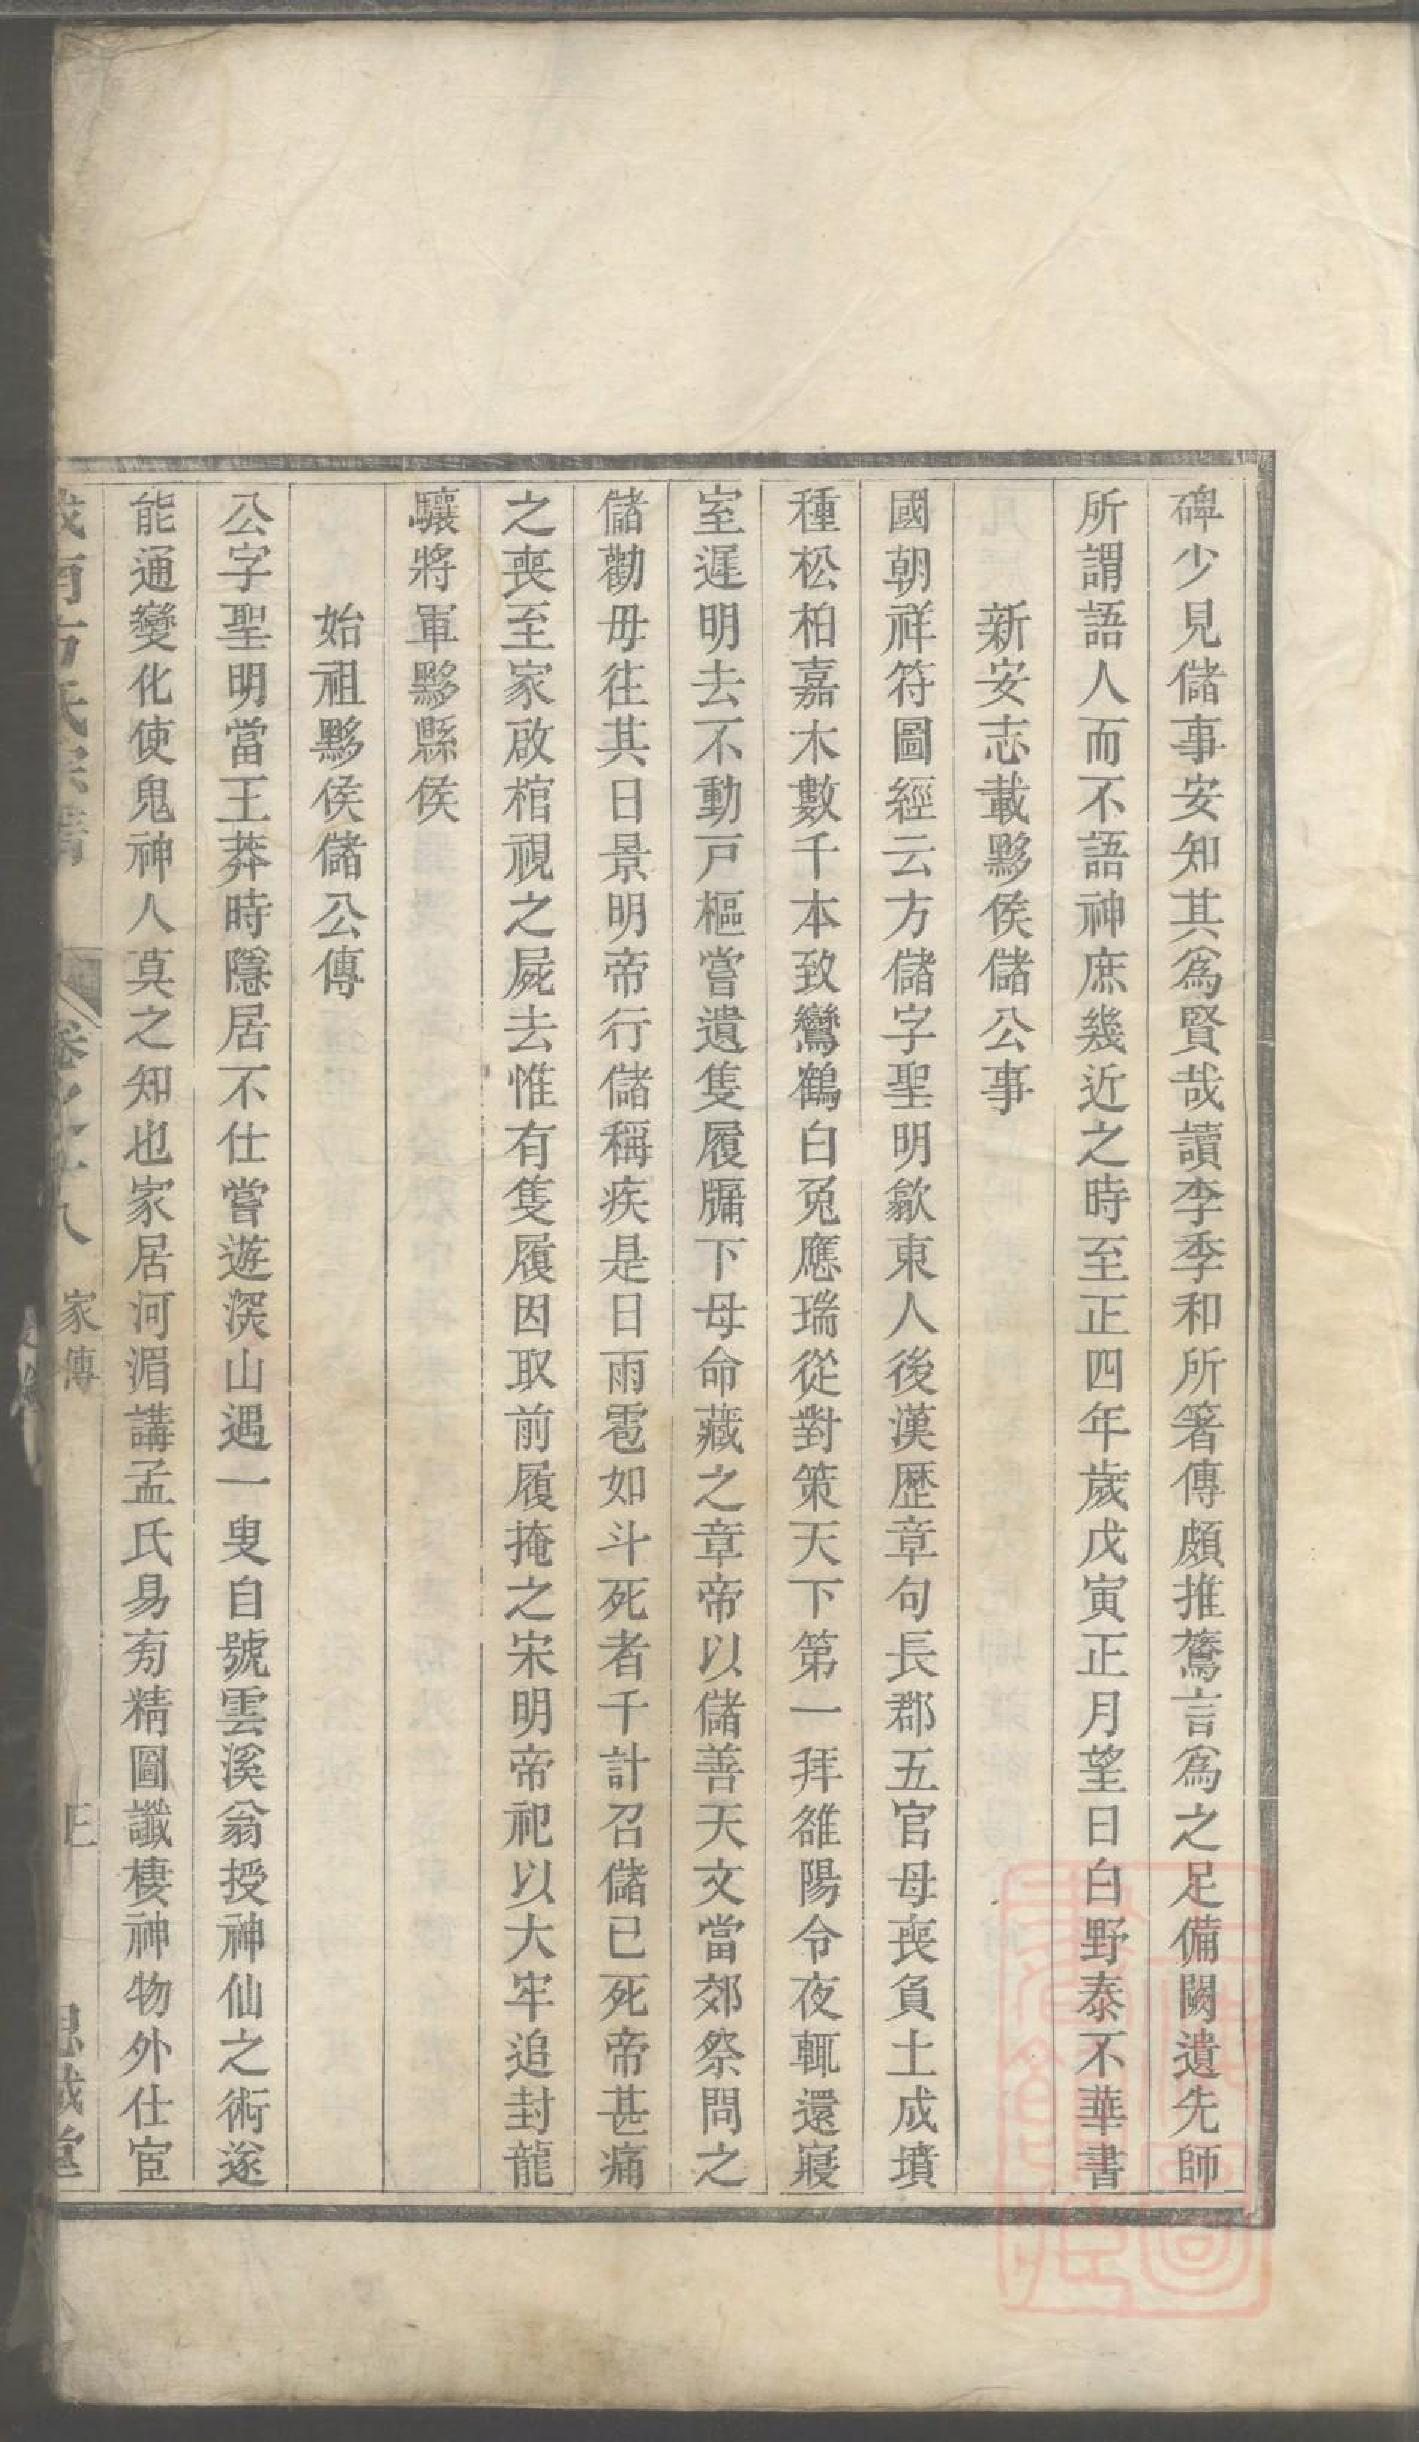 碑少見儲事安知其爲賢哉讀李季和所箸傳頗推鶱言爲之足備闕遺先師
所謂語人而不語神庶幾近之時至正四年歲戊寅正月望日白野泰不華書
新安志載黟侯儲公事
國朝祥符圖經云方儲字聖明歙東人後漢歴章句長郡五官母喪負土成墳
種松柏嘉木數千本致鸞鶴白兎應瑞從對策天下第一拜雒陽令夜輒還寢
室遲明去不動戸樞嘗遺隻履牖下母命藏之章帝以儲善天文當郊祭問之
儲勸毋往其日景明帝行儲稱疾是日雨雹如斗死者千計召儲已死帝甚痛
之喪至家啟棺視之屍去惟有隻履因取前履掩之宋明帝祀以大牢追封龍
驤將軍黟縣侯
始祖黟侯儲公傳
公字聖明當王莽時隱居不仕嘗遊深山遇一叟自號雲溪翁授神仙之術遂
能通變化使鬼神人莫之知也家居河湄講孟氏易旁精圖讖棲神物外仕宦
家傳